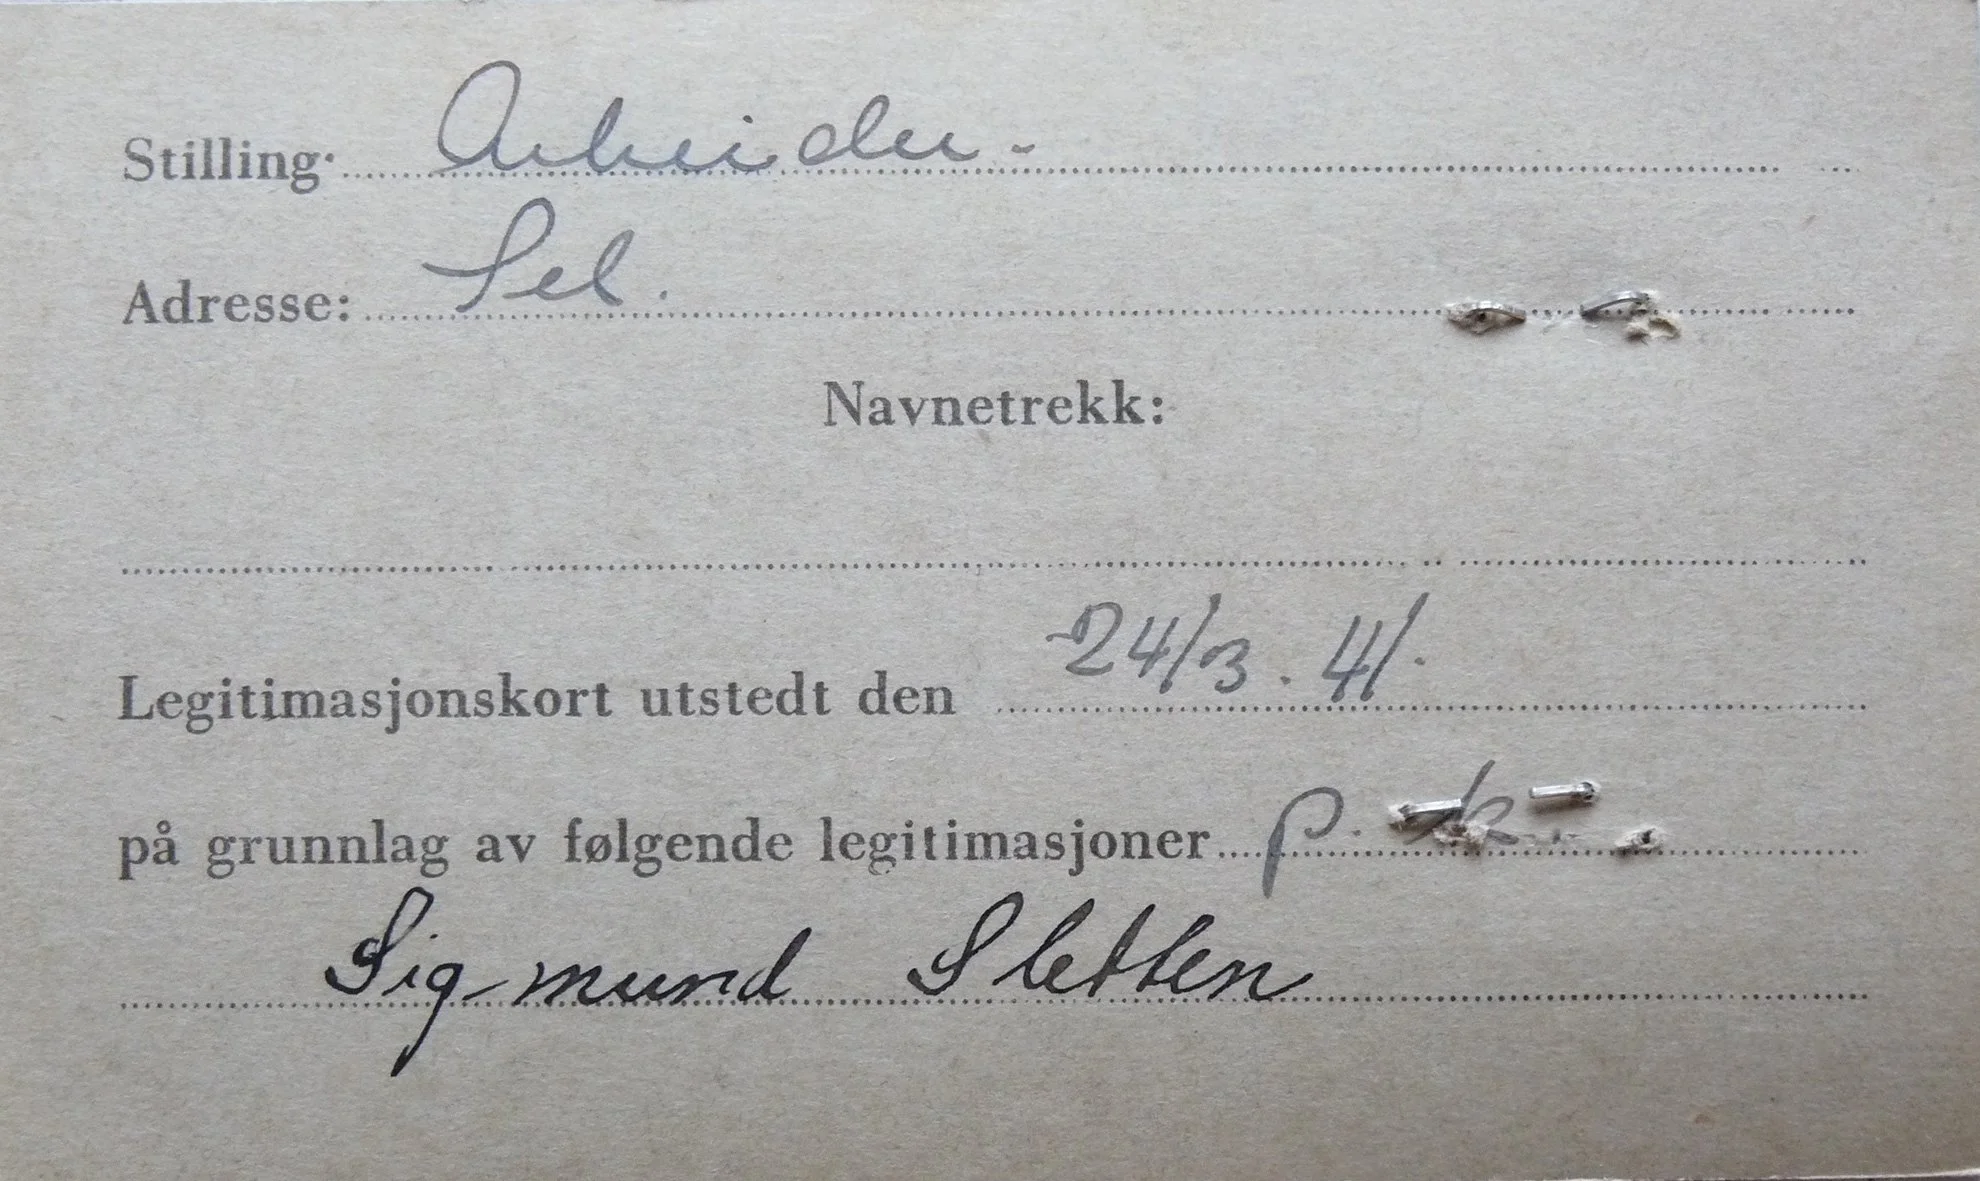 Stilling: Arbeider.
Adresse: Sel.
Navnetrekk:
Legitimasjonskort utstedt den 24/3. 41.
på grunnlag av følgende legitimasjoner p. k.
Sigmund Sletten